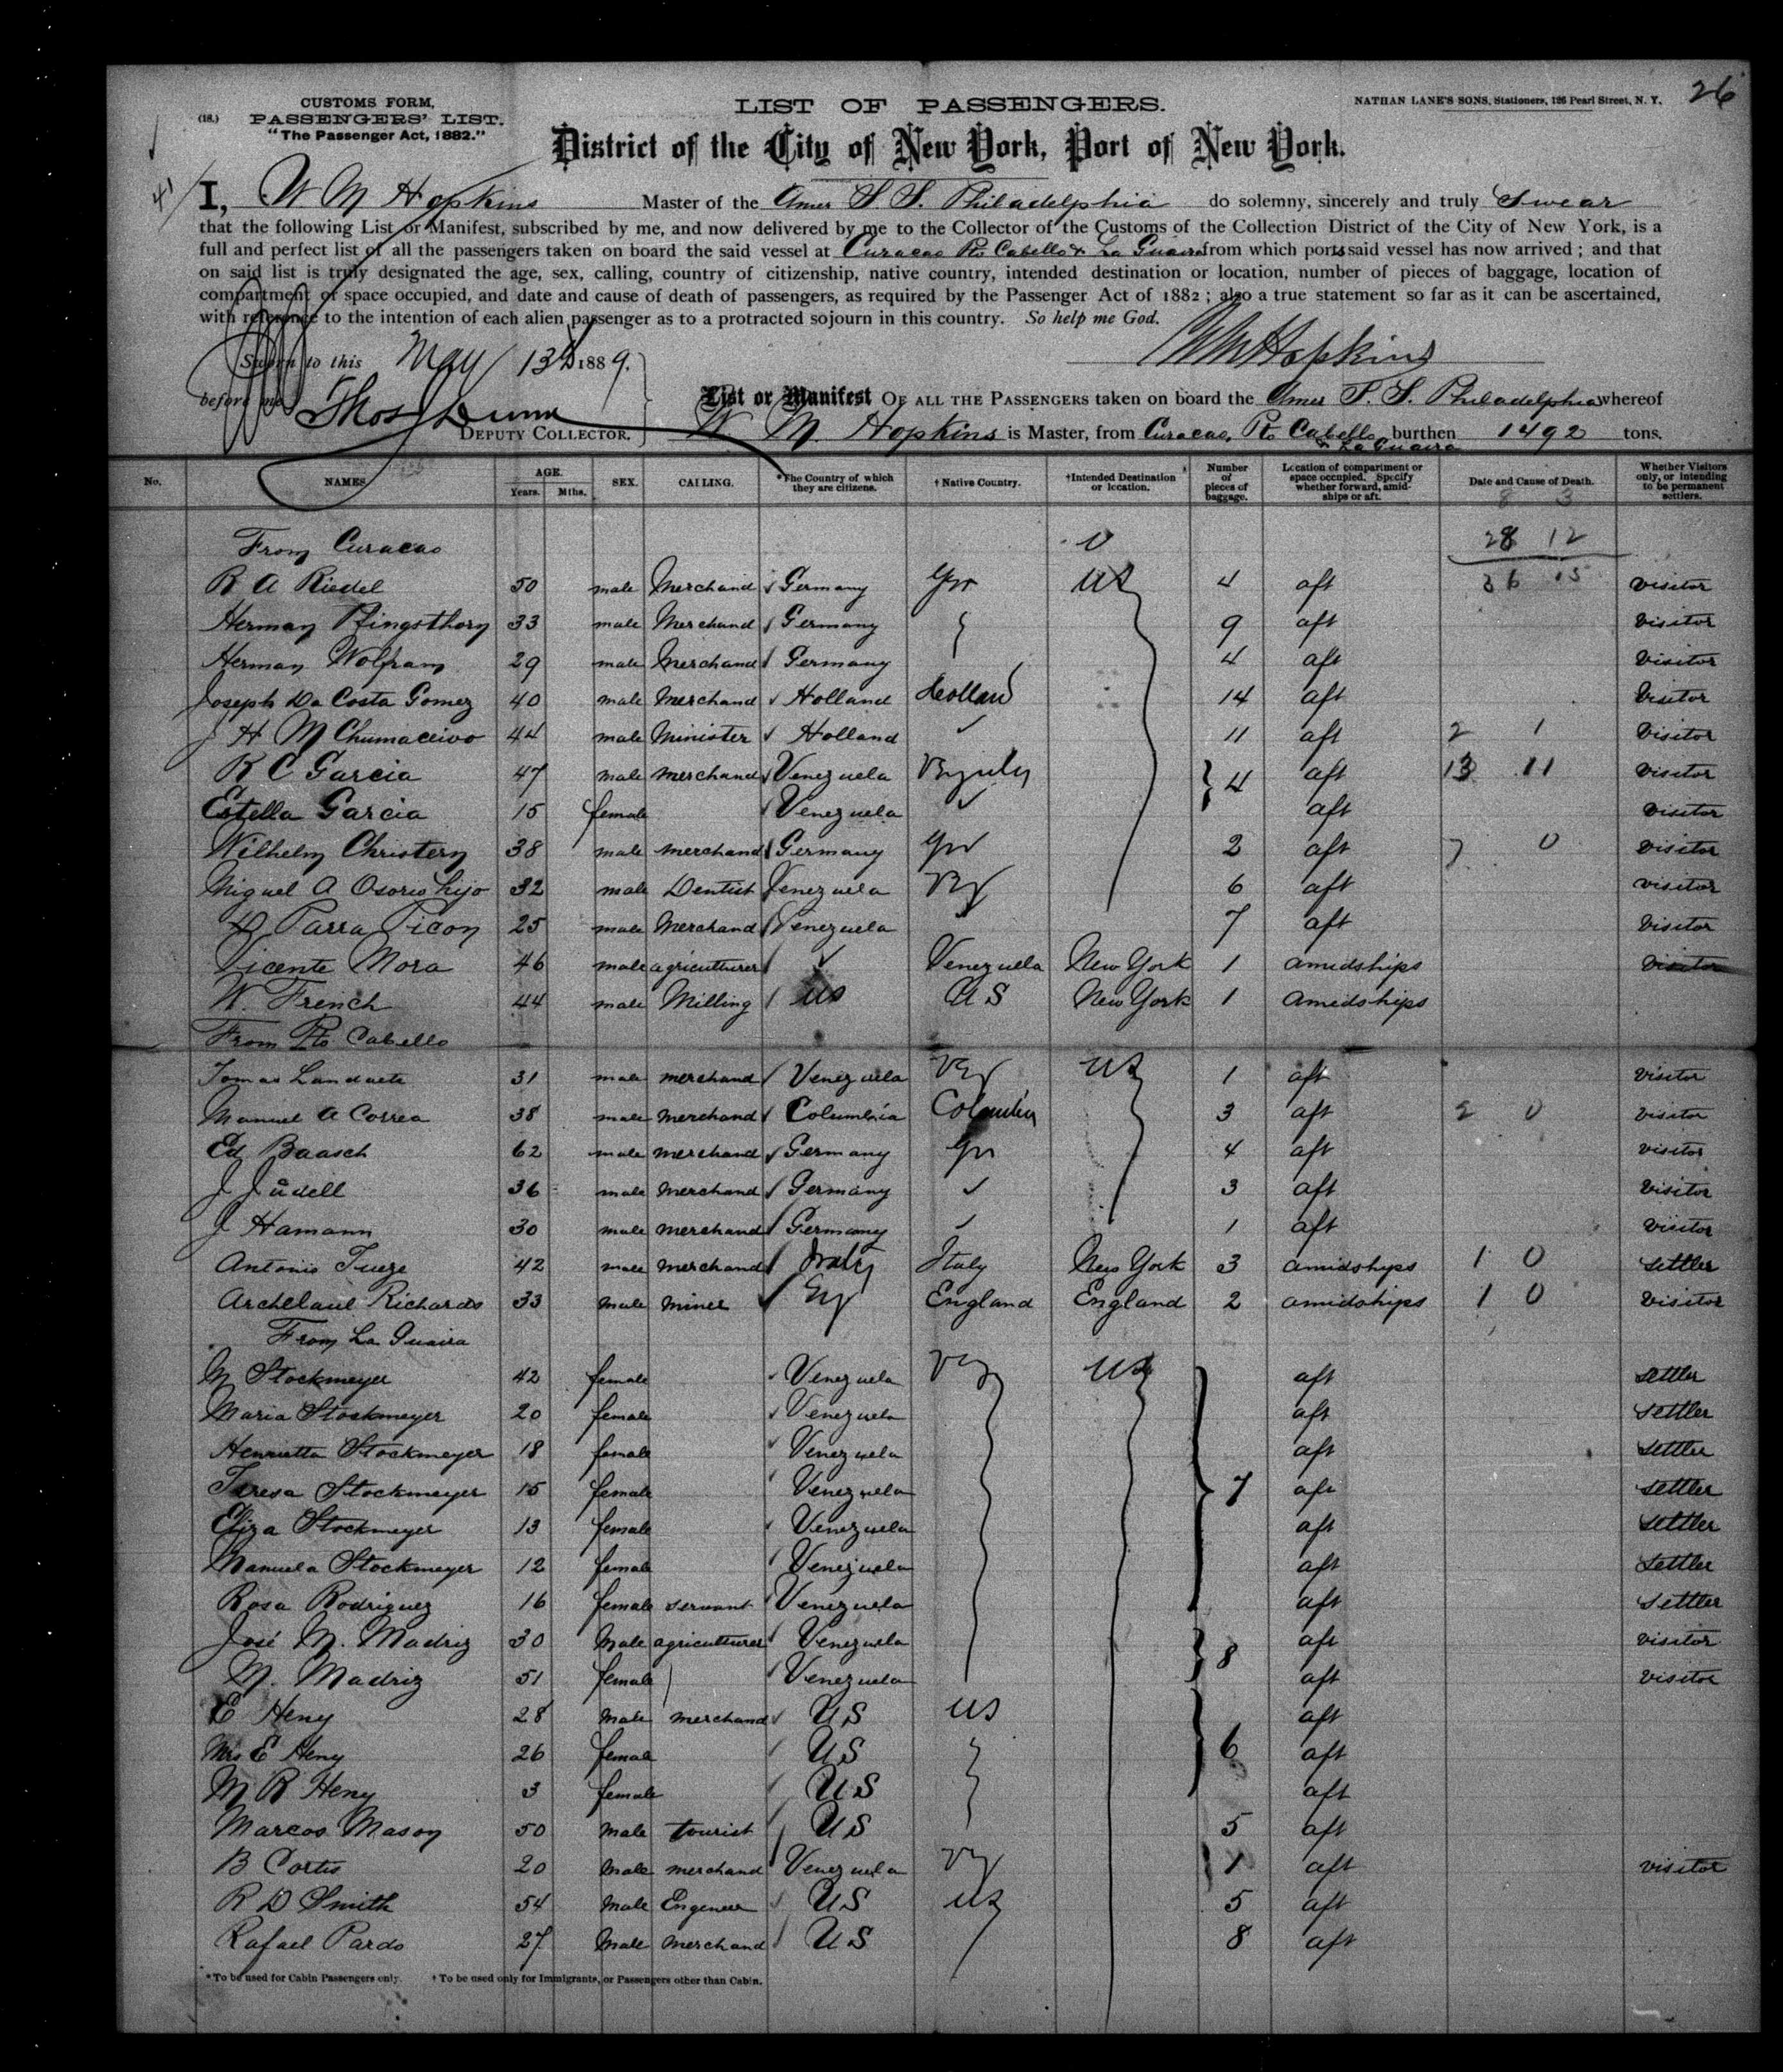 26
CUSTOMS FORM, LIST OF PASSENGERS. NATHAN LANE'S SONS, Stationers, 126 Pearl Street, N. Y.
(18.) PASSENGERS' LIST.
"The Passenger Act, 1882."
District of the City of New York, Port of New York.
41
I, W M Hopkins Master of the Amer S. S. Philadelphia do solemny, sincerely and truly swear
that the following List or Manifest, subscribed by me, and now delivered by me to the Collector of the Customs of the Collection District of the City of New York, is a
full and perfect list of all the passengers taken on board the said vessel at Curacao Pto Cabello & La Guaira from which ports said vessel has now arrived ; and that
on said list is truly designated the age, sex, calling, country of citizenship, native country, intended destination or location, number of pieces of baggage, location of
compartment or space occupied, and date and cause of death of passengers, as required by the Passenger Act of 1882 ; also a true statement so far as it can be ascertained,
with reference to the intention of each alien passenger as to a protracted sojourn in this country. So help me God.
Sworn to this May 13th 1889. W M Hopkins
before me Thos Dunn
DEPUTY COLLECTOR.
List or Manifest OF ALL THE PASSENGERS taken on board the Amer S. S. Philadelphia whereof
W M. Hopkins is Master, from Curacao, Pto Cabello & La Guaira burthen 1492 tons.
No. NAMES. AGE. Years. Mths. SEX. CALLING. *The Country of which they are citizens. † Native Country. †Intended Destination or location. Number of pieces of baggage. Location of compartment or space occupied. Specify whether forward, amidships or aft. Date and Cause of Death. Whether Visitors only, or intending to be permanent settlers.
8 3
From Curacao 28 12
R A Riedel 50 male Merchand Germany Ger US 4 aft 36 15 visitor
Herman Ringsthorn 33 male Merchand Germany 9 aft visitor
Herman Wolfram 29 male Merchand Germany 4 aft visitor
Joseph Da Costa Gomez 40 male Merchand Holland Holland 14 aft visitor
J H M Chumaceivo 44 male Minister Holland 11 aft 2 1 visitor
R C Garcia 47 male merchand Venezuela 4 aft 13 11 visitor
Estella Garcia 15 female Venezuela aft visitor
Wilhelm Christern 38 male merchand Germany Ger 2 aft 7 0 visitor
Miguel A Osorio hijo 32 male Dentist Venezuela Vez 6 aft visitor
D Parra Picon 25 male Merchand Venezuela 7 aft visitor
Vicente Mora 46 male agriculturer Venezuela New York 1 amidships visitor
W. French 44 male Milling US U S New York 1 amidships
From Pto Cabello
Tomas Landaete 31 male merchand Venezuela Vez US 1 aft visitor
Manuel A Correa 38 male merchand Columbia Columbia 3 aft 2 0 visitor
Ed Baasch 62 male merchand Germany Ger 4 aft visitor
J Jüdell 36 male merchand Germany 3 aft visitor
J Hamann 30 male merchand Germany 1 aft visitor
Antonio 42 male merchand Italy Italy New York 3 amidships 1 0 settler
Archelaul Richards 33 male miner England England 2 amidships 1 0 visitor
From La Guaira
M Stockmeyer 42 female Venezuela Vez US aft settler
Maria Stockmeyer 20 female Venezuela aft settler
Henrietta Stockmeyer 18 female Venezuela aft settler
Teresa Stockmeyer 15 female Venezuela 7 aft settler
Eliza Stockmeyer 13 female Venezuela aft settler
Manuela Stockmeyer 12 female Venezuela aft settler
Rosa Rodriguez 16 female servant Venezuela aft settler
José M. Madriz 30 male agriculturer Venezuela 8 aft visitor
M. Madriz 51 female Venezuela aft visitor
E Heny 28 male merchand US US aft
Mrs E Heny 26 female US 6 aft
M R Heny 3 female US aft
Marcos Mason 50 male tourist US 5 aft
B Cortis 20 male merchand Venezuela Vez 1 aft visitor
R D Smith 54 male Engeneer US US 5 aft
Rafael Pardo 27 male merchand US 8 aft
*To be used for Cabin Passengers only. † To be used only for Immigrants, or Passengers other than Cabin.